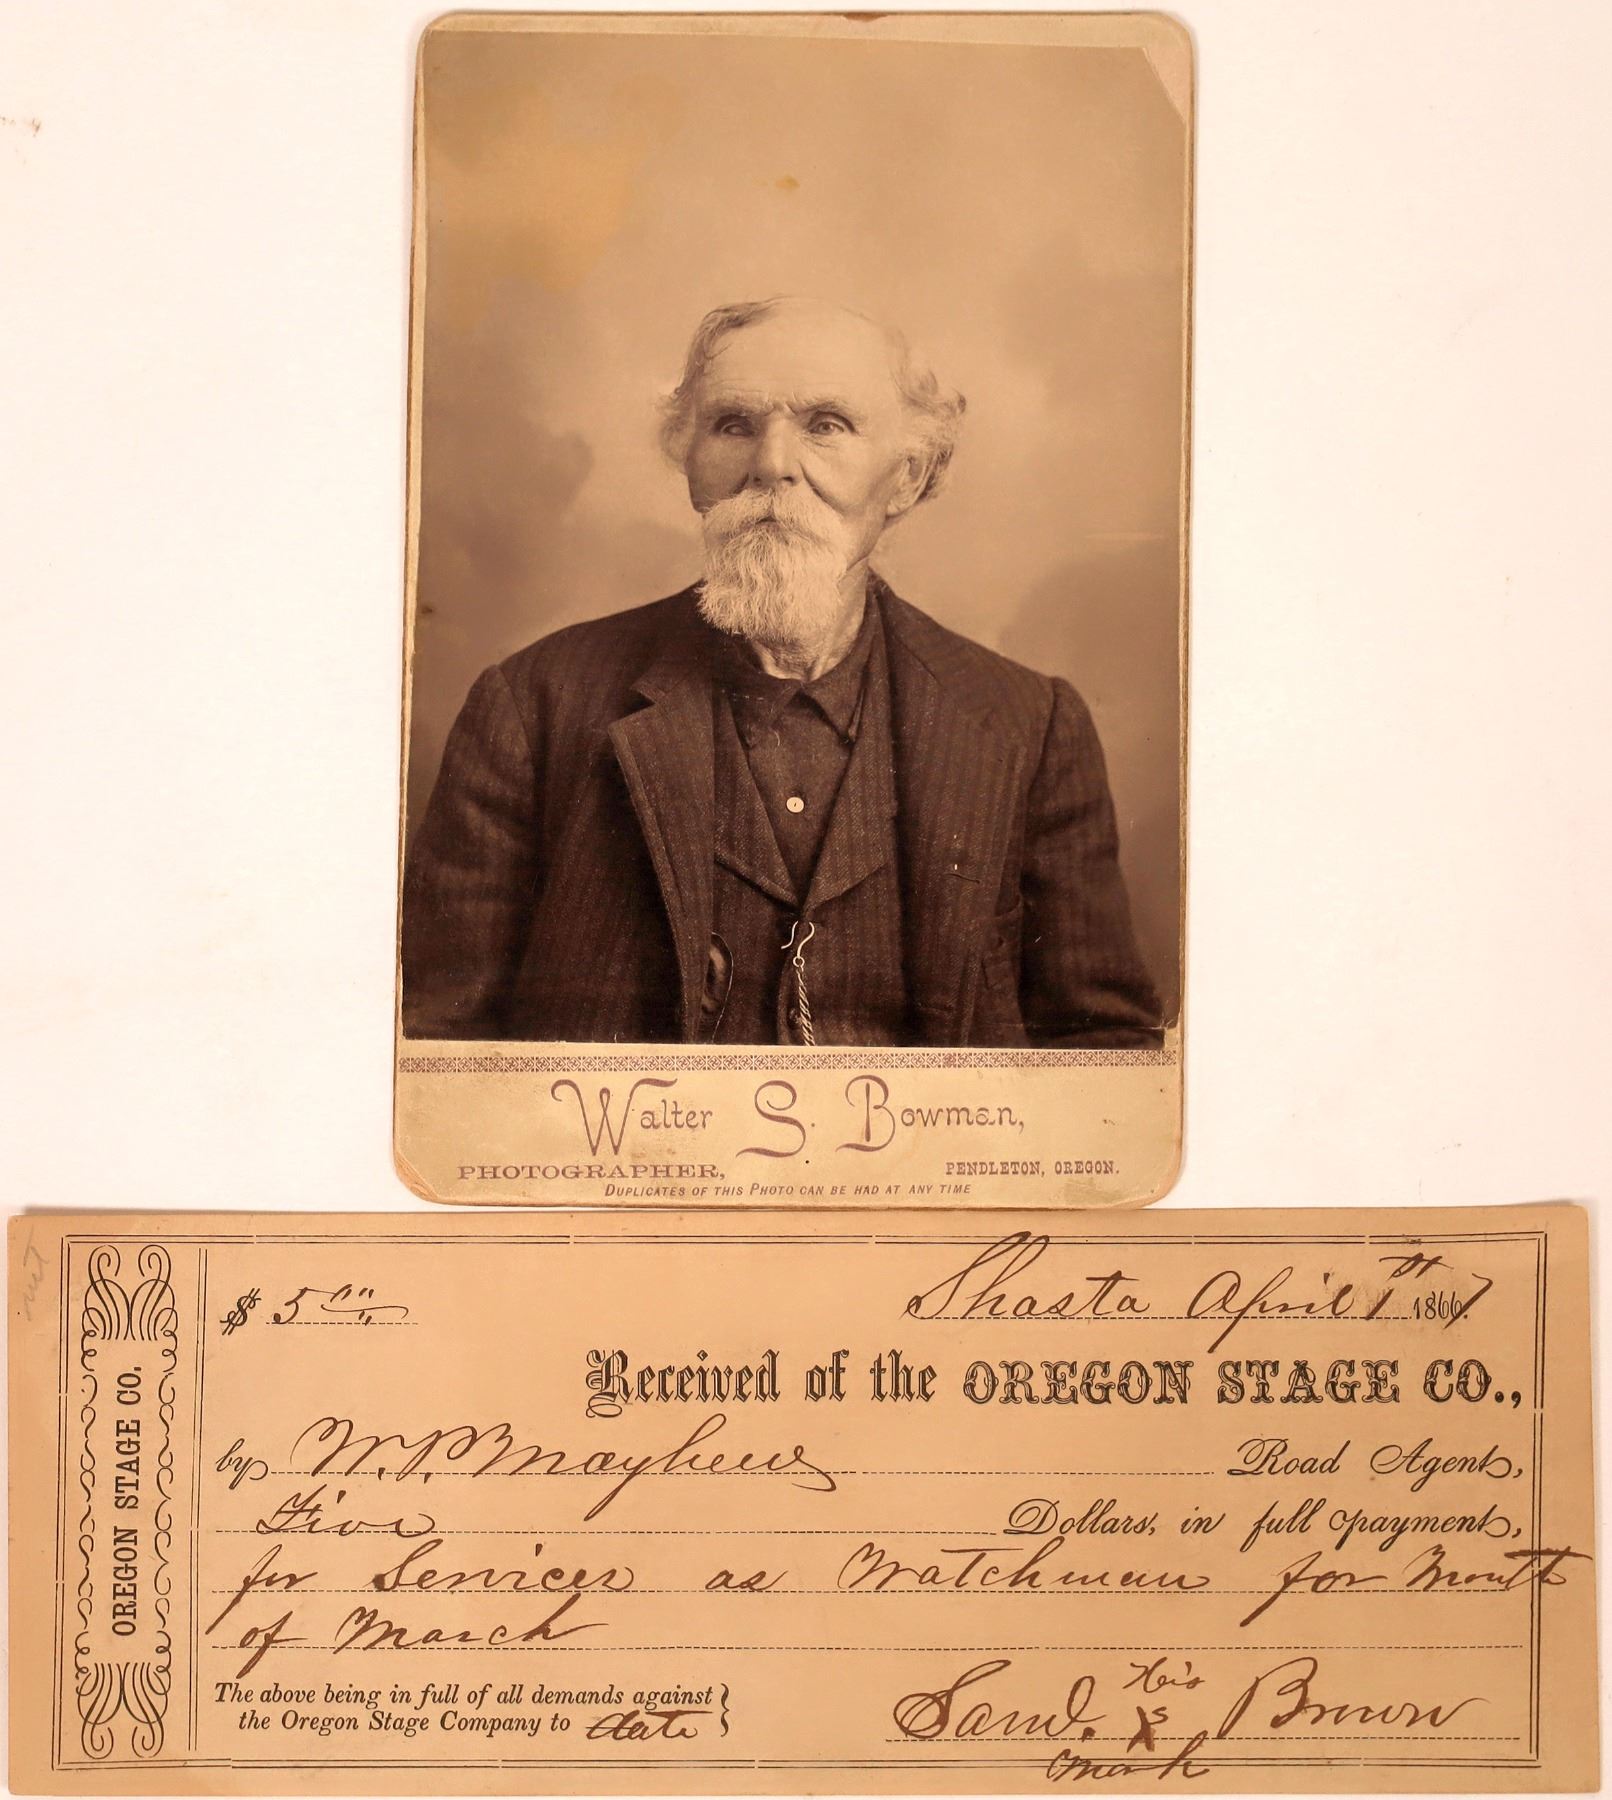 Walter S. Bowman,
PHOTOGRAPHER, PENDLETON, OREGON.
DUPLICATES OF THIS PHOTO CAN BE HAD AT ANY TIME
OREGON STAGE CO.
$ 5 00/11 Shasta April 1st 1867
Received of the OREGON STAGE CO.,
by W. P. Mayhew Road Agent,
Five Dollars, in full payment,
for Services as Watchman for Month
of March
The above being in full of all demands against
the Oregon Stage Company to date
His
Saml. X Brown
mark